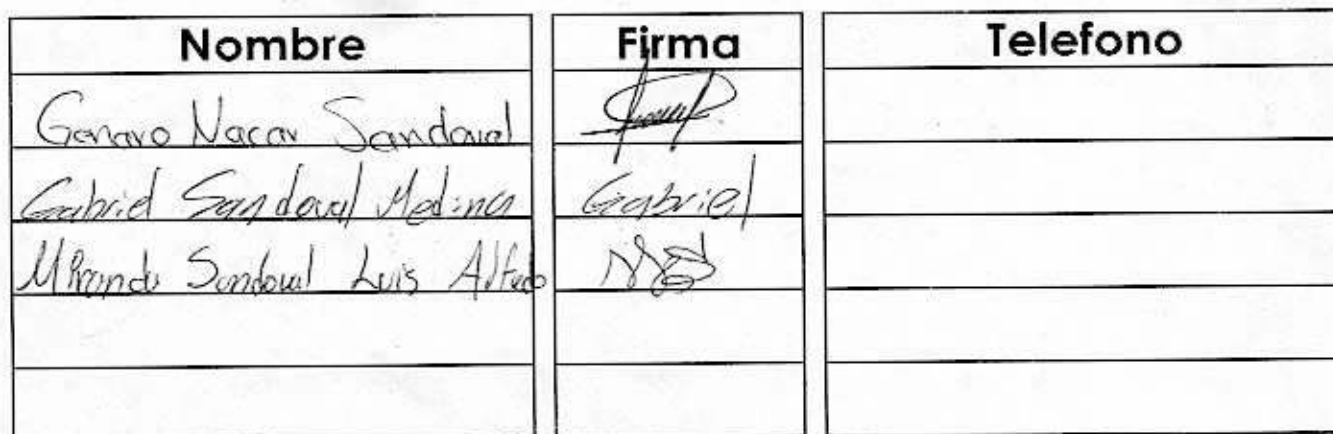 Nombre Firma Telefono
Genaro Nacar Sandoval
Gabriel Sandoval Medina Gabriel
Miranda Sandoval Luis Alfredo